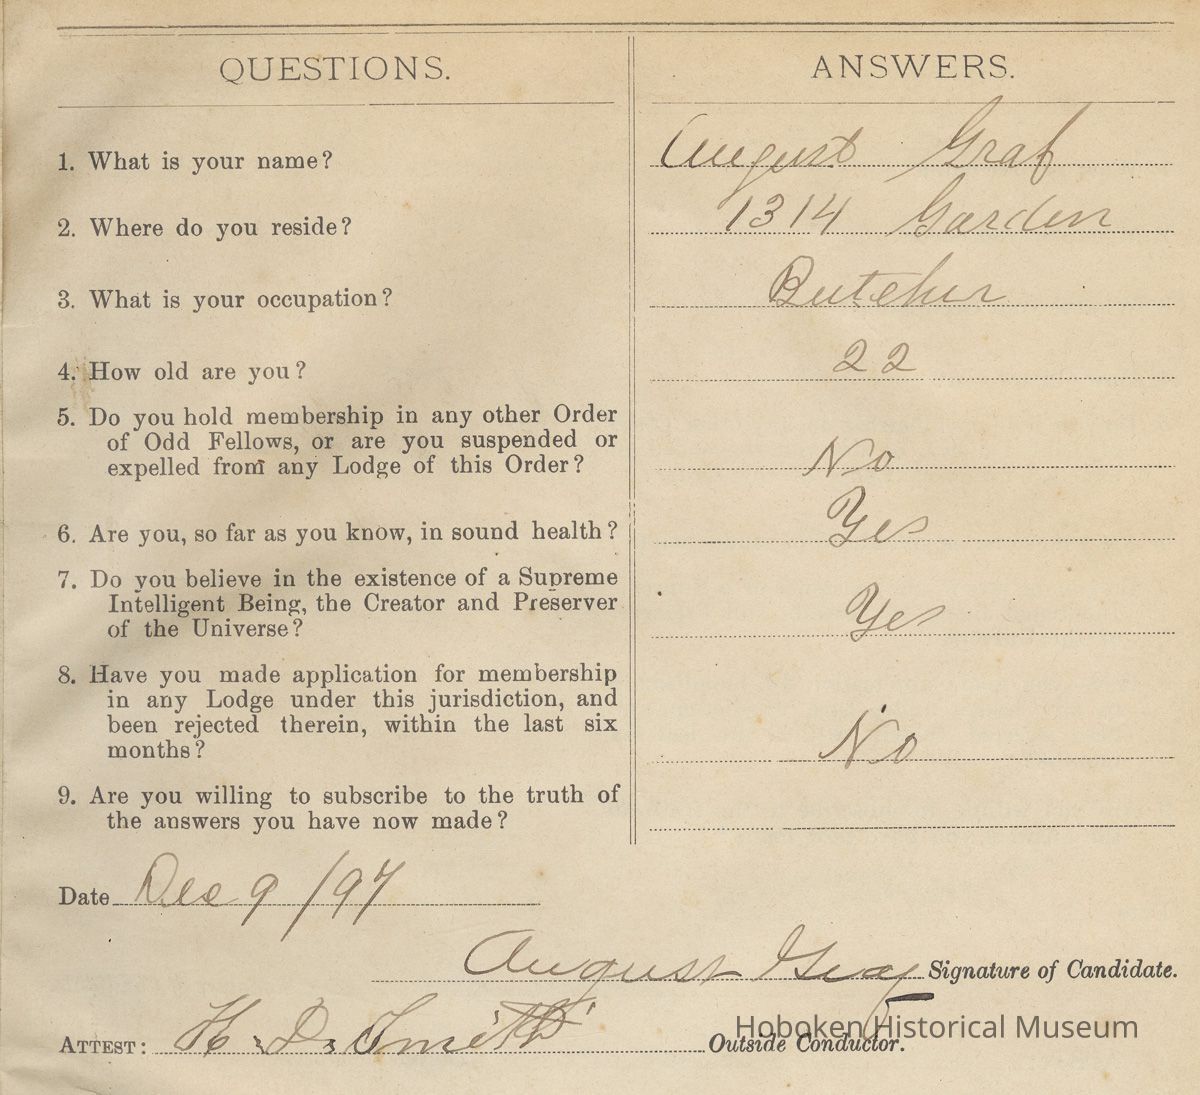 QUESTIONS. ANSWERS.
1. What is your name? August Graf
2. Where do you reside? 1314 Garden
3. What is your occupation? Butcher
4. How old are you? 22
5. Do you hold membership in any other Order
of Odd Fellows, or are you suspended or
expelled from any Lodge of this Order? No
6. Are you, so far as you know, in sound health? Yes
7. Do you believe in the existence of a Supreme
Intelligent Being, the Creator and Preserver
of the Universe? Yes
8. Have you made application for membership
in any Lodge under this jurisdiction, and
been rejected therein, within the last six
months? No
9. Are you willing to subscribe to the truth of
the answers you have now made?
Date Dec 9 /97
August Graf Signature of Candidate.
Hoboken Historical Museum
ATTEST: H. D. Smith Outside Conductor.